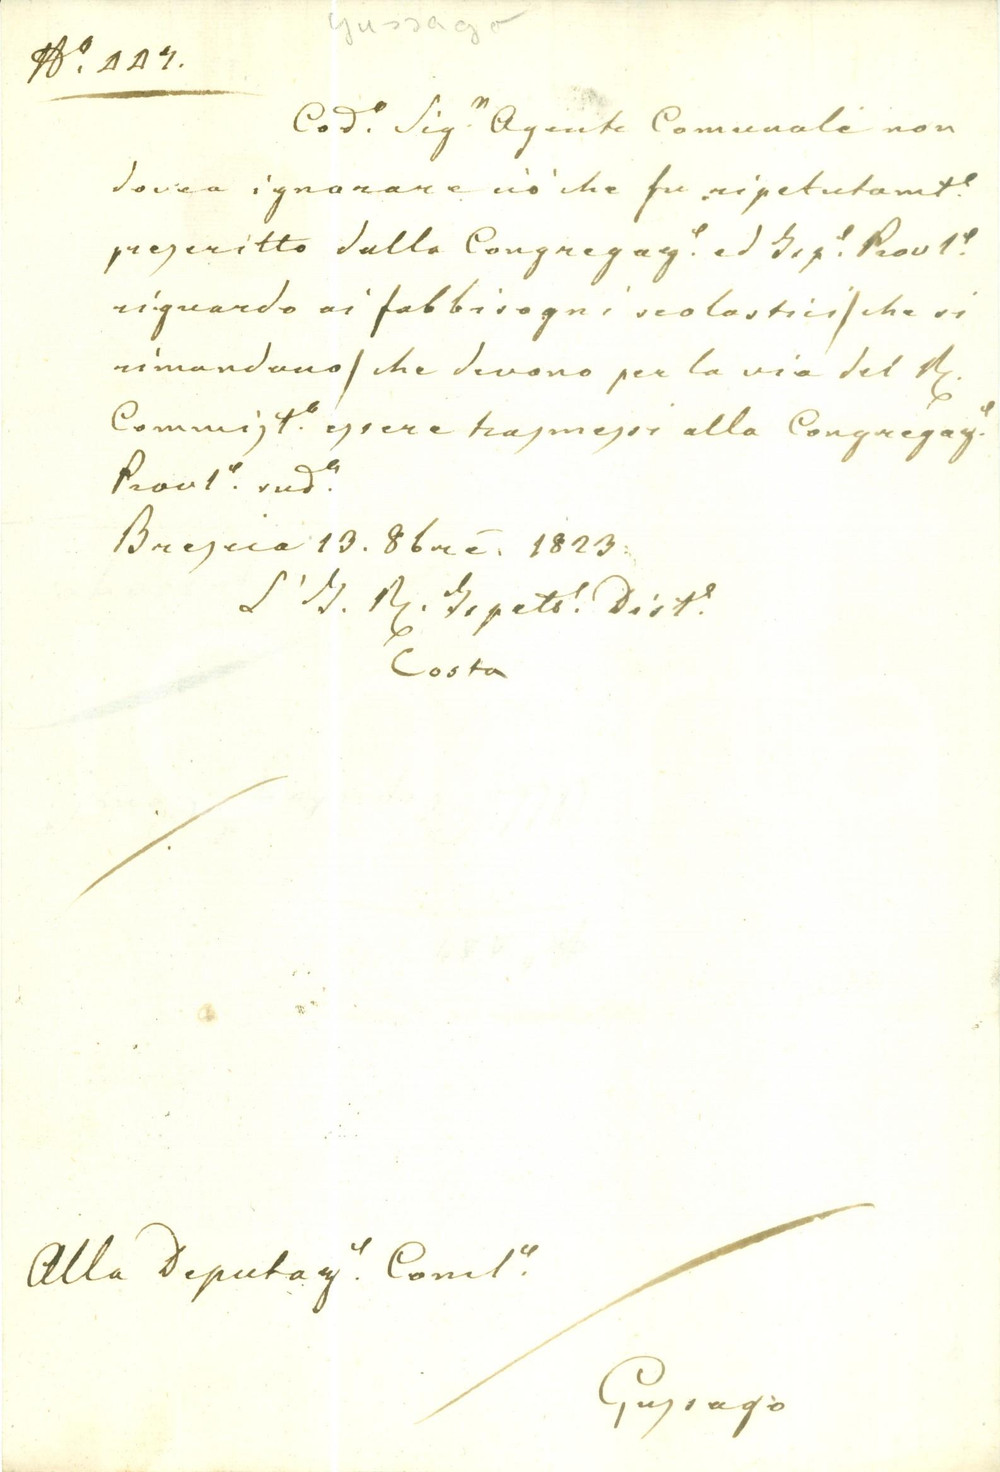 Gussago
N.º 227.
Cod.º Sig.n Agente Comunale non
dovea ignorare ciò che fu ripetutam.te
prescritto dalla Congregaz.e ed Isp.e Prov.le
riguardo ai fabbisogni scolastici/che si
rimandano/che devono per la via del R.
Commiss.to essere trasmessi alla Congregaz.e
Prov.le sud.a
Brescia 13. 8bre. 1823.
L'I. R. Ispett.e Dist.e
Costa
Alla Deputaz.e Com.le
Gussago